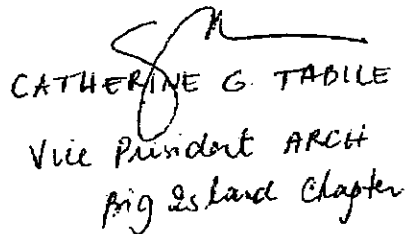 CATHERINE G. TABILE
Vice President ARCH
Big Island Chapter